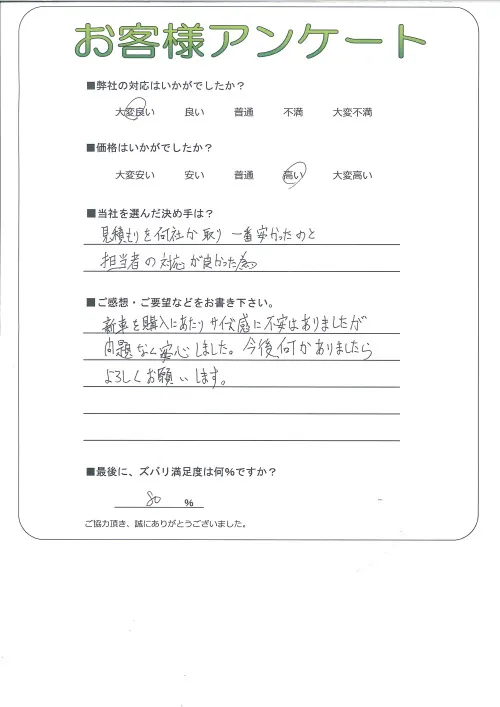 お客様アンケート
■弊社の対応はいかがでしたか？
大変良い 良い 普通 不満 大変不満
■価格はいかがでしたか？
大変安い 安い 普通 高い 大変高い
■当社を選んだ決め手は？
見積もりを何社か取り 一番安かったのと
担当者の対応が良かった為
■ご感想・ご要望などをお書き下さい。
新車を購入にあたりサイズ感に不安はありましたが
問題なく安心しました。今後何かありましたら
よろしくお願いします。
■最後に、ズバリ満足度は何％ですか？
80 ％
ご協力頂き、誠にありがとうございました。